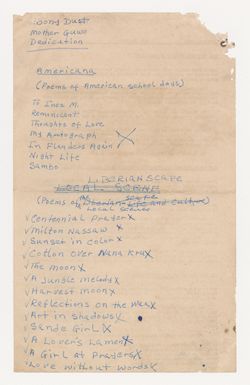 Dust
Mother Guwo
Dedication
Americana
(Poems of American school days)
To Inez M.
Reminiscent
Thoughts of Love
My Autograph
In Flanders Again X
Night Life
Sambo
LIBERIANSCAPE
LOCAL
(Poems of Liberian Life and Culture)
Local scenes
✓ Centennial Prayer X
✓ Milton Nassaw X
✓ Sunset in color X
✓ Cotton over Nana Kru X
✓ The Moon X
✓ A Jungle melody X
✓ Harvest moon X
✓ Reflections on the Way X
✓ Art in Shadows X
✓ Sande Girl X
✓ A Lover's Lament X
✓ A Girl at Prayers X
✓ Love without Words X